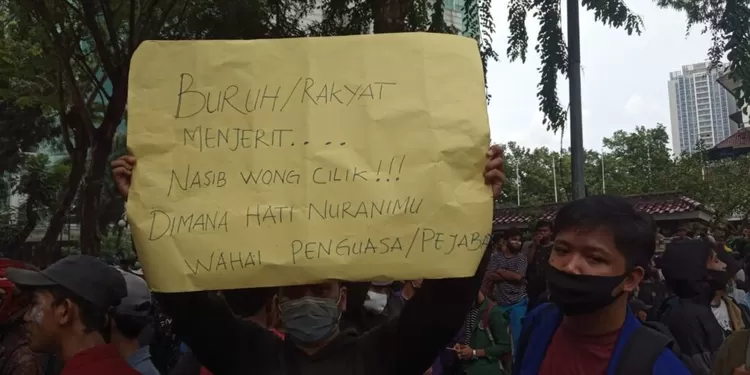 BURUH/RAKYAT
MENJERIT....
NASIB WONG CILIK!!!
DIMANA HATI NURANIMU
WAHAI PENGUASA/PEJABA